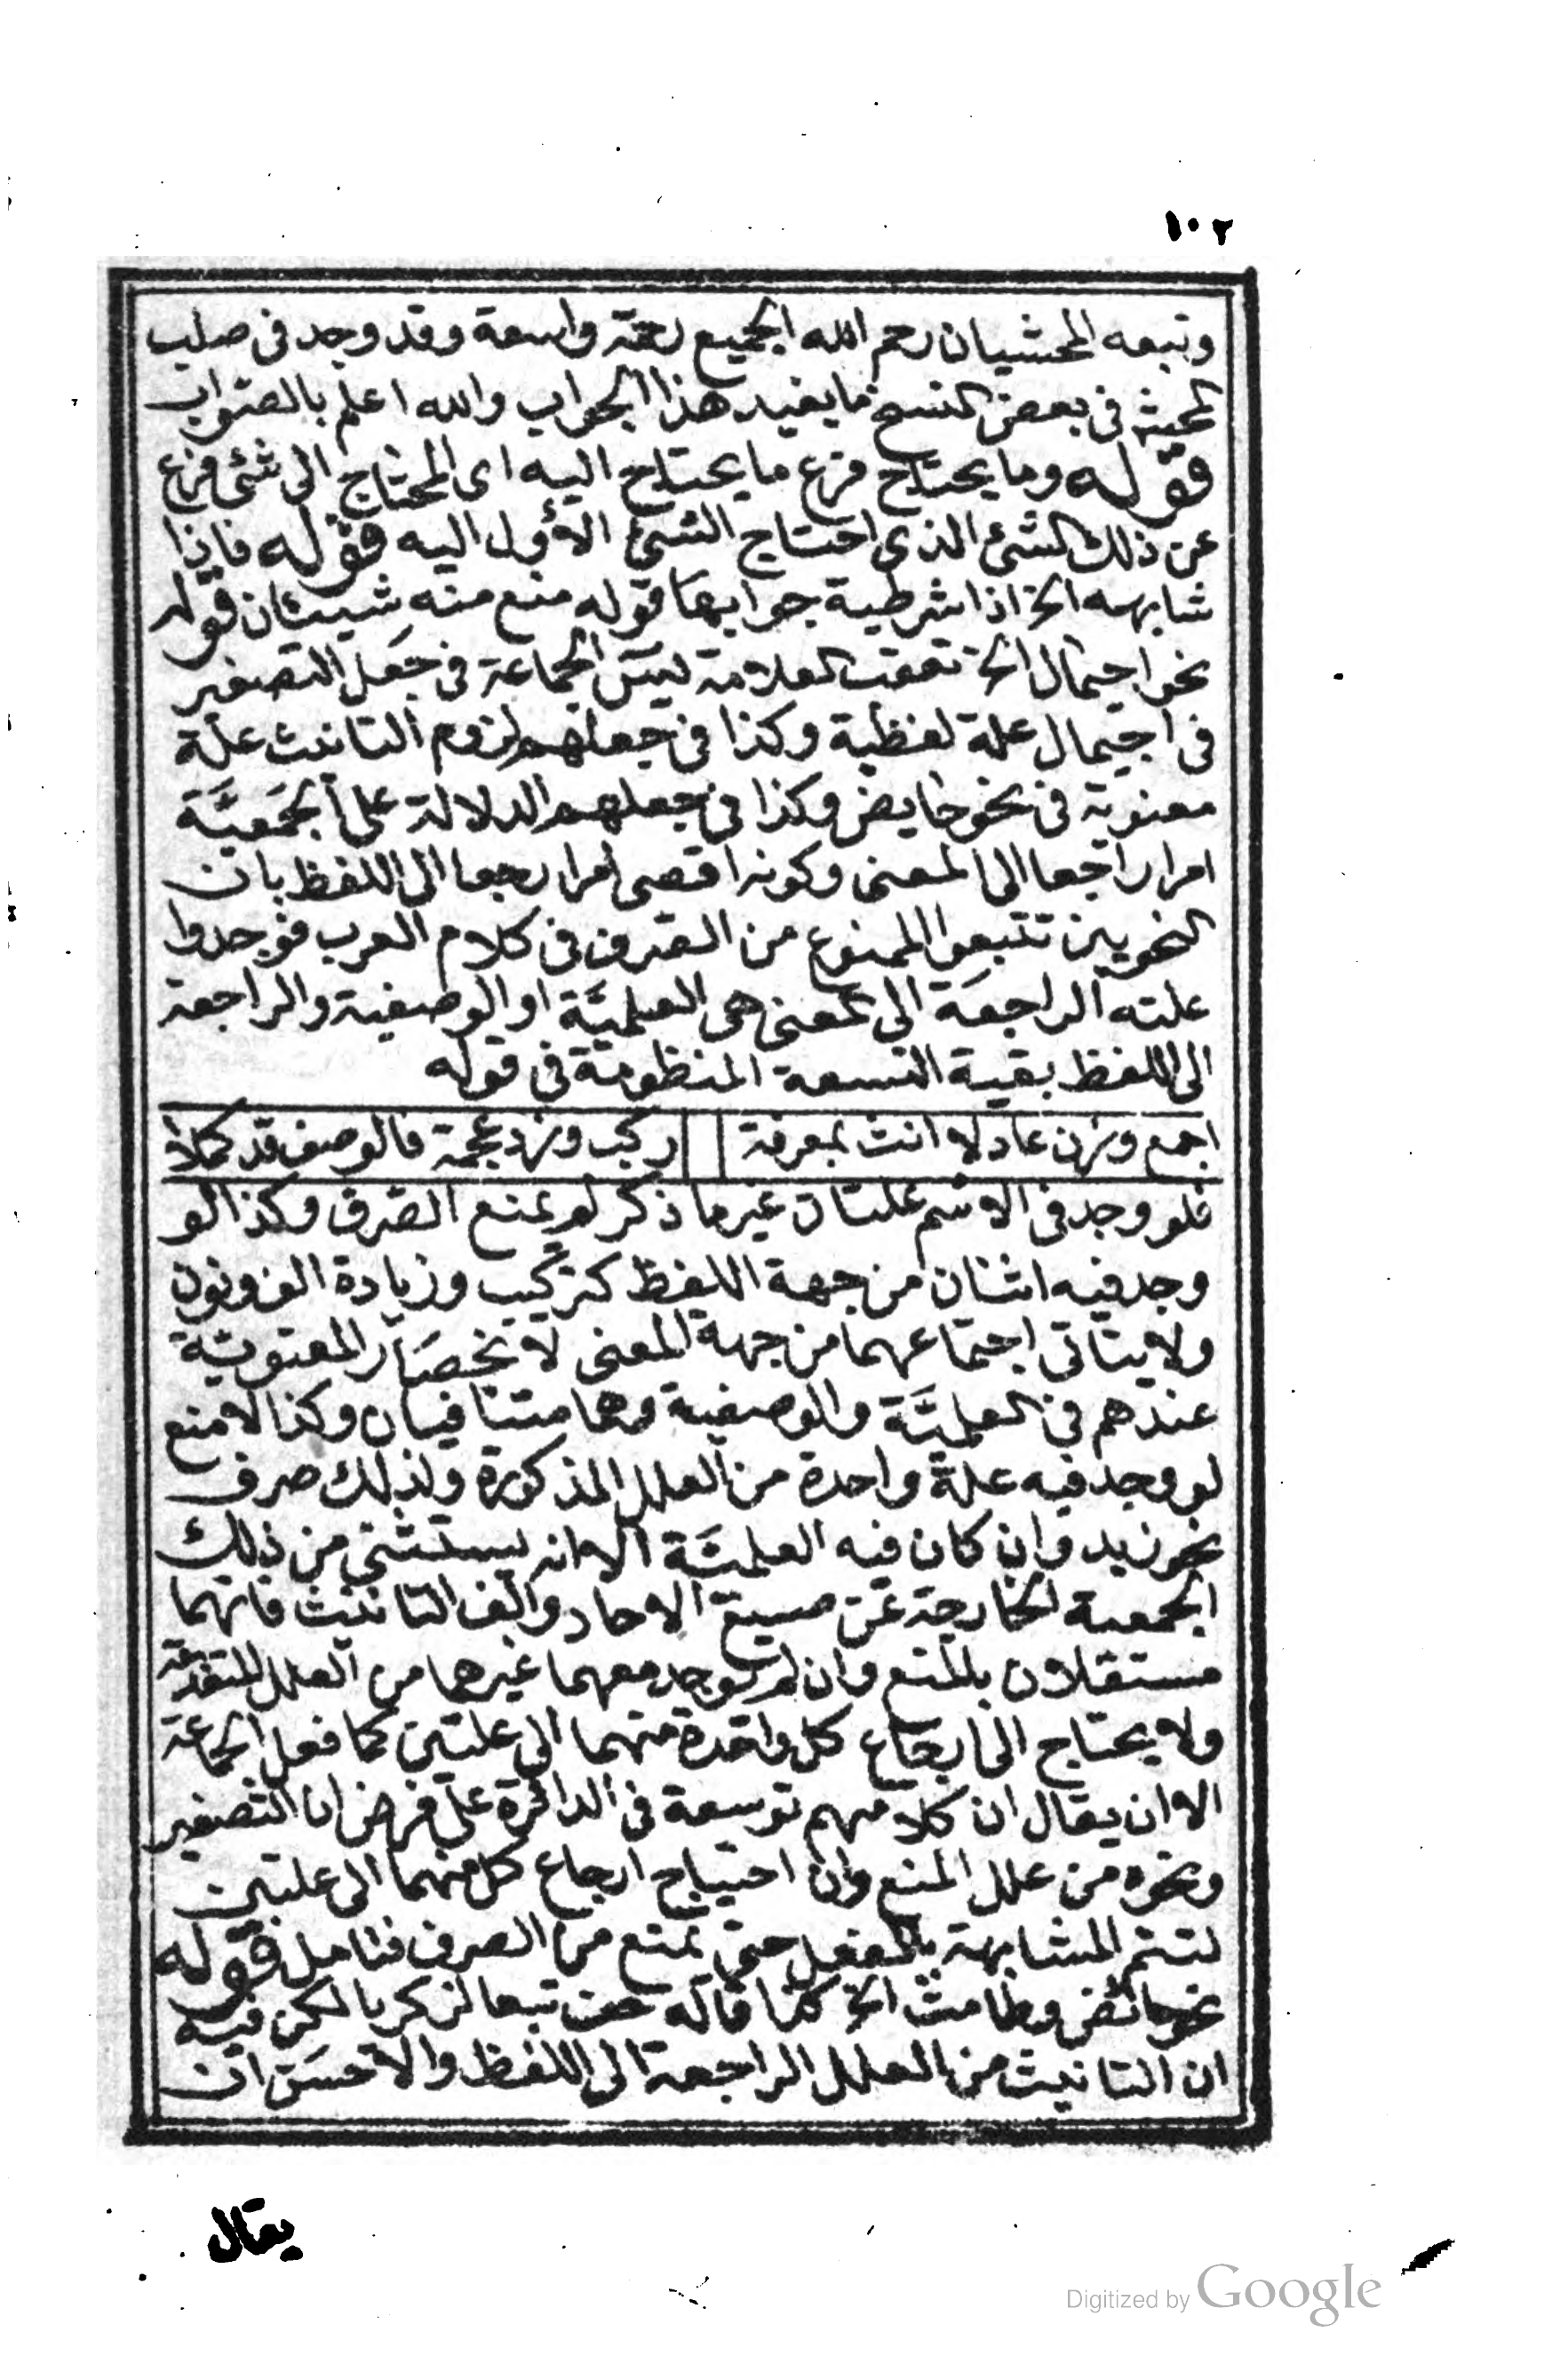 ١٠٢
وتبعه المحشيان رحم الله الجميع رحمة واسعة وقد وجد في صلب
المحشي في بعض النسخ ما يفيد هذا الجواب والله اعلم بالصواب
قوله وما يحتاج فرع ما يحتاج اليه اى المحتاج الى شئ فرع
عن ذلك الشئ الذى احتاج الشئ الأول اليه قوله فاذا
شابهه الخ اذا شرطية جوابها قوله منع منه شيئان قوله
نحو اجيمال الخ تعقب العلامة يس الجماعة في جعل التصغير
في اجيمال علة لفظية وكذا في جعلهم لزوم التانيث علة
معنوية في نحو حايض وكذا في جعلهم الدلالة على الجمعيَّة
امرا راجعا الى المعنى وكونه اقصى امرا راجعا الى اللفظ بان
النحويين تتبعوا الممنوع من الصرف في كلام العرب فوجدوا
علته الراجعة الى المعنى هى العلميَّة او الوصفية والراجعة
الى اللفظ بقية التسعة المنظومة في قوله
اجمع وزن عادلا انث بمعرفة ركب وزد عجمة فالوصف قد كملا
فلو وجد في الاسم علتان غير ما ذكر لم يمنع الصرف وكذا لو
وجد فيه اثنان من جهة اللفظ كتركيب وزيادة الف ونون
ولا يتاتى اجتماعهما من جهة المعنى لانحصار المعنويّة
عندهم في العلميَّة والوصفية وهما متنافيان وكذا لا منع
لو وجد فيه علة واحدة من العلل المذكورة ولذلك صرف
نحو زيد وان كان فيه العلميَّة الا انه يستثنى من ذلك
الجمعية الخارجة عن صيغ الاحاد والف التانيث فانهما
مستقلان بالمنع وان لم يوجد معهما غيرهما من العلل المتقدمة
ولا يحتاج الى ارجاع كل واحدة منهما الى علتين كما فعل الجماعة
الا ان يقال ان كلامهم توسعة في الدائرة على فرض ان التصغير
ونحوه من علل المنع وان احتياج ارجاع كل منهما الى علتين
لتتم المشابهة بالفعل حتى يمنع من الصرف فتامل قوله
نحو حائض وطامث الخ كذا قاله تبعا لزكريا لكن فيه
ان التانيث من العلل الراجعة الى اللفظ والاحسن ان
يقال
Digitized by Google